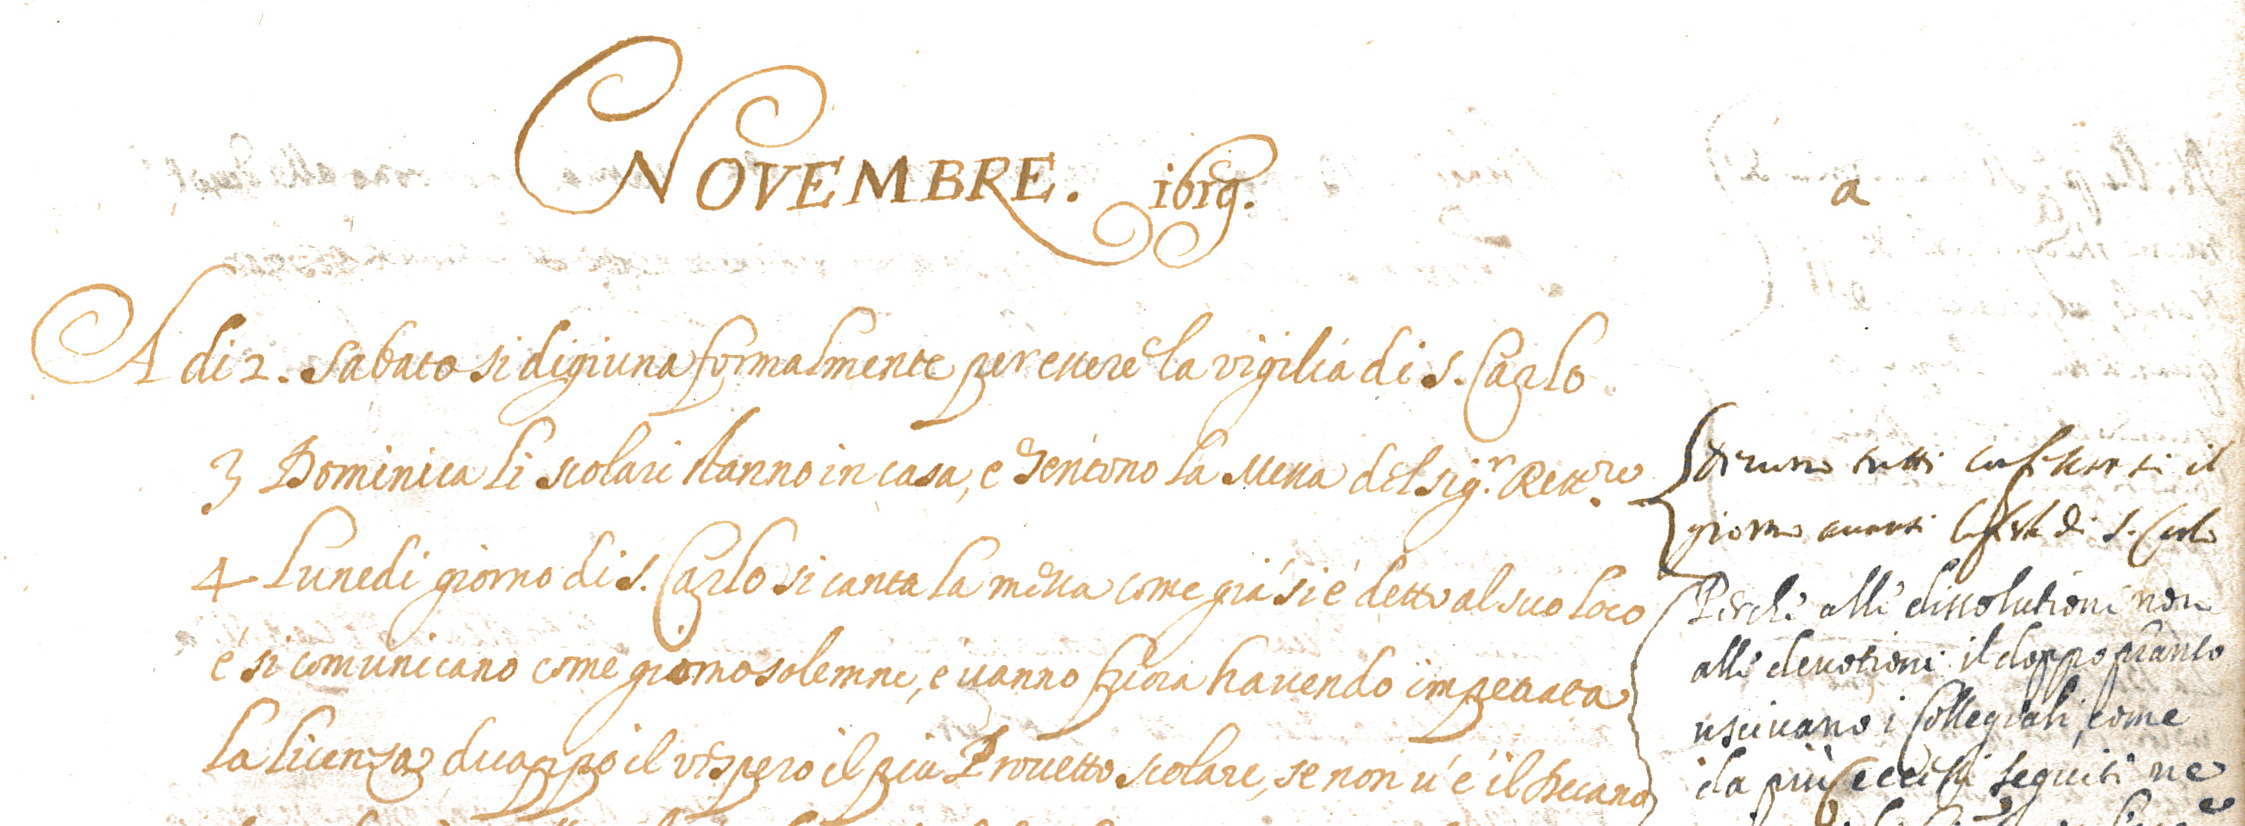 NOVEMBRE. 1619.
a
A di 2. Sabato si digiuna formalmente per essere la vigilia di S. Carlo
3 Dominica li scolari stanno in casa, e sentono la Messa del sig.r Rett.re
4 Lunedi giorno di S. Carlo si canta la messa come giá si é detto al suo loco
é si comunicano come giorno solemne, é uanno fuora hauendo impetrata
la licenza, duoppo il vespero il piu Prouetto scolare, se non u' é il Decano
tutti il
giorno auanti la festa di S. Carlo
Perche alle dissolutioni non
alle deuotioni il doppo pranso
usciuano i Collegiali, come
da più eccessi seguiti ne